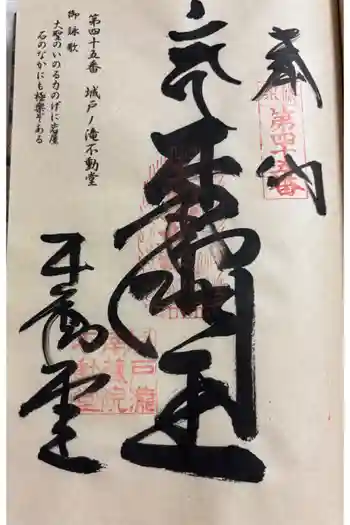 奉
第四十五番
不動明王
不動堂
第四十五番 城戸ノ滝不動堂
御詠歌
大聖のいのる力のげに岩屋
石のなかにも極楽ぞある